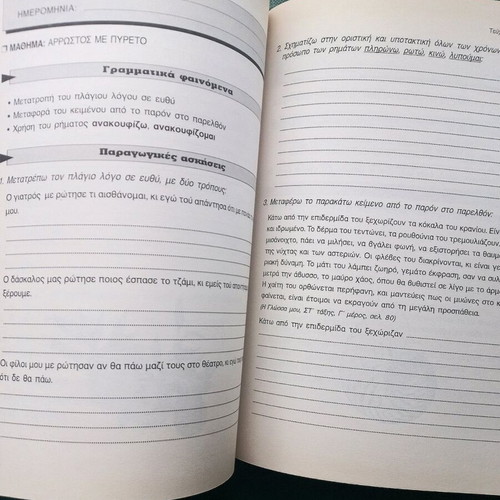 ΗΜΕΡΟΜΗΝΙΑ:
ΜΑΘΗΜΑ: ΑΡΡΩΣΤΟΣ ΜΕ ΠΥΡΕΤΟ
Γραμματικά φαινόμενα
• Μετατροπή του πλάγιου λόγου σε ευθύ
• Μεταφορά του κειμένου από το παρόν στο παρελθόν
• Χρήση του ρήματος ανακουφίζω, ανακουφίζομαι
Παραγωγικές ασκήσεις
1. Μετατρέπω τον πλάγιο λόγο σε ευθύ, με δύο τρόπους:
Ο γιατρός με ρώτησε τι αισθάνομαι, κι εγώ τού απάντησα ότι
μου.
Ο δάσκαλος μας ρώτησε ποιος έσπασε το τζάμι, κι εμείς τού
ξέρουμε.
Οι φίλοι μου με ρώτησαν αν θα πάω μαζί τους στο θέατρο, κι εγώ
ότι δε θα πάω.
2. Σχηματίζω στην οριστική και υποτακτική όλων των χρόνων
πρόσωπο των ρημάτων πληρώνω, ρωτώ, κινώ, λυπούμαι:
3. Μεταφέρω το παρακάτω κείμενο από το παρόν στο παρελθόν:
Κάτω από την επιδερμίδα του ξεχωρίζουν τα κόκαλα του κρανίου.
και ιδρωμένο. Το δέρμα του τεντώνει, τα ρουθούνια του τρεμουλιάζουν
μισάνοιχτο, πάει να μιλήσει, να βγάλει φωνή, να εξιστορήσει τα
της νύχτας και των αστεριών. Οι φλέβες του διακρίνονται, κι είναι
ριακή δύναμη. Το μάτι του λάμπει ζωηρό, γεμάτο έκφραση, σαν να
μετρά την άβυσσο, το μαύρο χάος, όπου θα βυθιστεί σε λίγο με το
Η χαίτη του ορθώνεται περήφανη, και μαντεύεις πως οι μυώνες στο
φαίνεται, είναι έτοιμοι να εκραγούν από τη μεγάλη προσπάθεια.
(Η Γλώσσα μου, ΣΤ΄ τάξης, Γ΄ μέρος, σελ. 80)
Κάτω από την επιδερμίδα του ξεχώριζαν